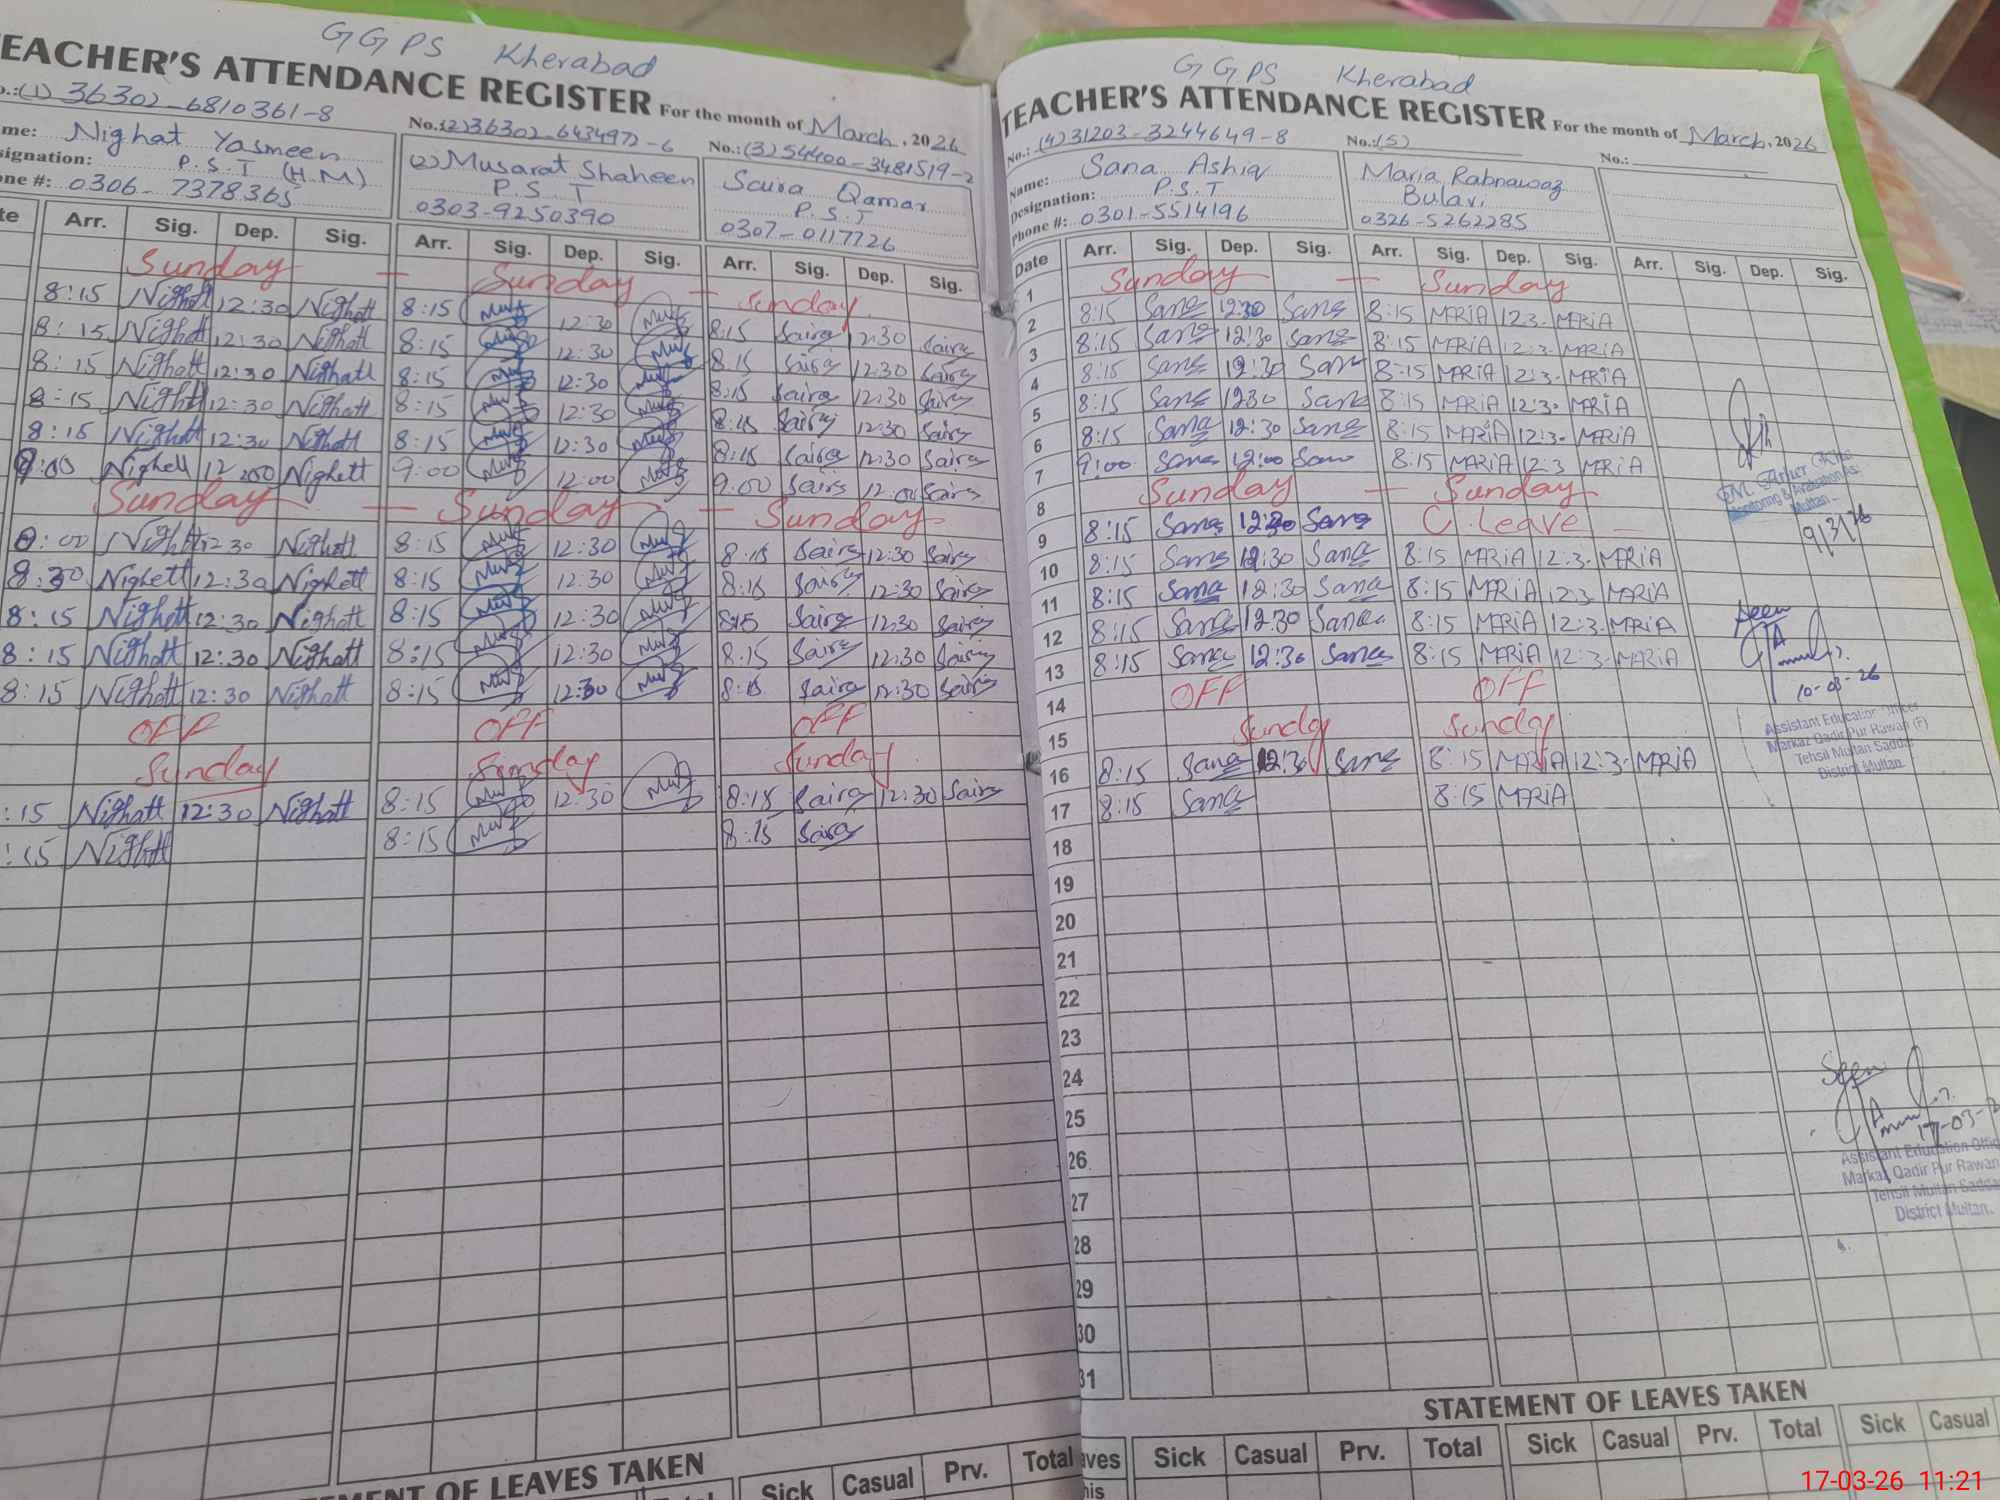 GGPS Kherabad
TEACHER'S ATTENDANCE REGISTER For the month of March, 2026
o.:(1) 36302-6810361-8 No.:(2) 36302-6434972-6 No.:(3) 54400-3481519-2
me: Nighat Yasmeen (2) Musarat Shaheen Saira Qamar
signation: P.S.T (H.M) P.S.T P.S.T
one #: 0306-7378365 0303-9250390 0307-0117726
te Arr. Sig. Dep. Sig. Arr. Sig. Dep. Sig. Arr. Sig. Dep. Sig.
Sunday - Sunday - Sunday
8:15 Nighatt 12:30 Nighatt 8:15 12:30 8:15 Saira 12:30 Saira
8:15 Nighatt 12:30 Nighatt 8:15 12:30 8:15 Saira 12:30 Saira
8:15 Nighatt 12:30 Nighatt 8:15 12:30 8:15 Saira 12:30 Saira
8:15 Nighatt 12:30 Nighatt 8:15 12:30 8:15 Saira 12:30 Saira
8:15 Nighatt 12:30 Nighatt 8:15 12:30 8:15 Saira 12:30 Saira
9:00 Nighatt Nighatt 9:00 12:00 9:00 Saira 12:00 Saira
Sunday - Sunday - Sunday
Nighatt 12:30 Nighatt 8:15 12:30 8:15 Saira 12:30 Saira
8:30 Nighatt 12:30 Nighatt 8:15 12:30 8:15 Saira 12:30 Saira
8:15 Nighatt 12:30 Nighatt 8:15 12:30 8:15 Saira 12:30 Saira
8:15 Nighatt 12:30 Nighatt 8:15 12:30 8:15 Saira 12:30 Saira
8:15 Nighatt 12:30 Nighatt 8:15 12:30 8:15 Saira 12:30 Saira
OFF OFF OFF
Sunday Sunday Sunday
:15 Nighatt 12:30 Nighatt 8:15 12:30 8:15 Saira 12:30 Saira
:15 Nighatt 8:15 8:15 Saira
EMENT OF LEAVES TAKEN
Sick Casual Prv. Total
GGPS Kherabad
TEACHER'S ATTENDANCE REGISTER For the month of March, 2026
No.: (4) 31203-3244649-8 No.:(5) No.:
Name: Sana Ashiq Maria Rabnawaz
Designation: P.S.T Bulavi
Phone #: 0301-5514196 0326-5262285
Date Arr. Sig. Dep. Sig. Arr. Sig. Dep. Sig. Arr. Sig. Dep. Sig.
1 Sunday - Sunday
2 8:15 Sana 12:30 Sana 8:15 MARiA 12:3- MARiA
3 8:15 Sana 12:30 Sana 8:15 MARiA 12:3- MARiA
4 8:15 Sana 12:30 Sana 8:15 MARiA 12:3- MARiA
5 8:15 Sana 1230 Sana 8:15 MARiA 12:3- MARiA
6 8:15 Sana 12:30 Sana 8:15 MARiA 12:3- MARiA
7 9:00 Sana 12:00 Sana 8:15 MARiA 12:3 MARiA
8 Sunday - Sunday
9 8:15 Sana 12:30 Sana C. Leave -
10 8:15 Sana 12:30 Sana 8:15 MARiA 12:3- MARiA
11 8:15 Sana 12:30 Sana 8:15 MARiA 12:3- MARiA
12 8:15 Sana 12:30 Sana 8:15 MARiA 12:3- MARiA
13 8:15 Sana 12:30 Sana 8:15 MARiA 12:3- MARiA
14 OFF OFF
15 Sunday Sunday
16 8:15 Sana 12:30 Sana 8:15 MARiA 12:3- MARiA
17 8:15 Sana 8:15 MARiA
18
19
20
21
22
23
24
25
26
27
28
29
30
31
Monitoring &
Multan
9/3/26
Seen
10-03-26
Assistant Education Officer
Markaz Qadir Pur Rawan (F)
Tehsil Multan Saddar
District Multan.
Seen
17-03-2
Assistant Education Offic
Markaz Qadir Pur Rawan
Tehsil Multan Saddar
District Multan.
STATEMENT OF LEAVES TAKEN
aves Sick Casual Prv. Total Sick Casual Prv. Total Sick Casual
his
17-03-26 11:21